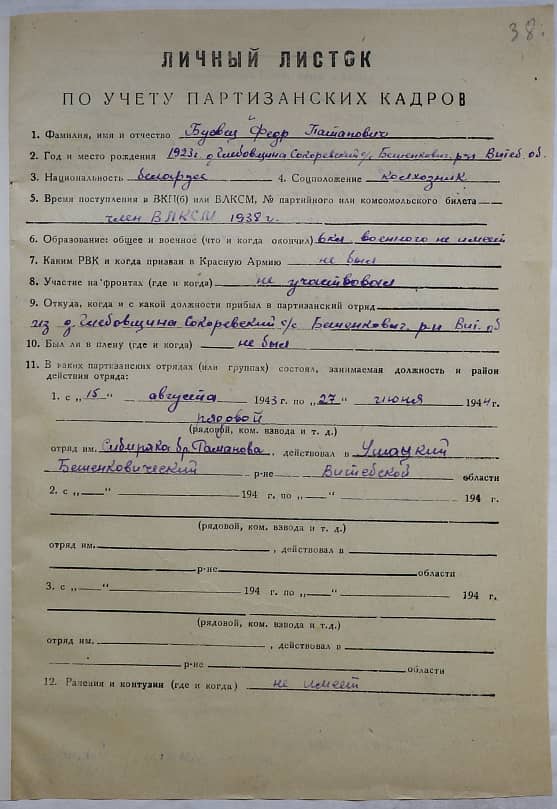 38.
ЛИЧНЫЙ ЛИСТОК
ПО УЧЕТУ ПАРТИЗАНСКИХ КАДРОВ
1. Фамилия, имя и отчество Федр Патапович
2. Год и место рождения 1923г. д. Глебовщина Сокоревский с/с Бешенкович. р-н Витеб. об.
3. Национальность беларус 4. Соцположение колхозник
5. Время поступления в ВКП(б) или ВЛКСМ, № партийного или комсомольского билета
член ВЛКСМ 1938 г.
6. Образование: общее и военное (что и когда окончил) 6кл военного не имеет
7. Каким РВК и когда призван в Красную Армию не был
8. Участие на фронтах (где и когда) не участвовал
9. Откуда, когда и с какой должности прибыл в партизанский отряд
из д. Глебовщина Сокоревский с/с Бешенкович. р-н Вит. об
10. Был ли в плену (где и когда) не был
11. В каких партизанских отрядах (или группах) состоял, занимаемая должность и район
действия отряда:
1. с „15“ августа 1943 г. по „27“ июня 1944 г.
рядовой
(рядовой, ком. взвода и т. д.)
отряд им. Сибиряка бр. Гаманова, действовал в Ушацкий
Бешенковический р-не Витебской области
2. с „ “ 194 г. по „ “ 194 г.
(рядовой, ком. взвода и т. д.)
отряд им. , действовал в
р-не области
3. с „ “ 194 г. по „ “ 194 г.
(рядовой, ком. взвода и т. д.)
отряд им. , действовал в
р-не области
12. Ранения и контузии (где и когда) не имеет